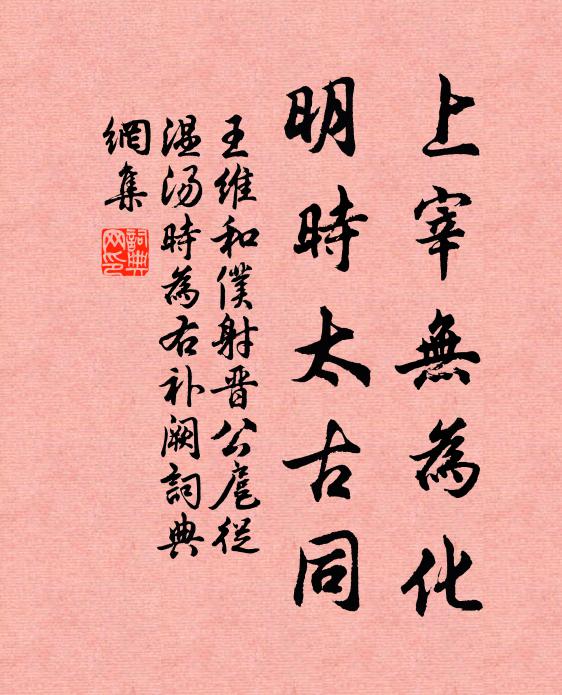 上宰無為化
明時太古同
王維和僕射晋公扈從
温湯時為右补阙詞典
網集
詞典
网印